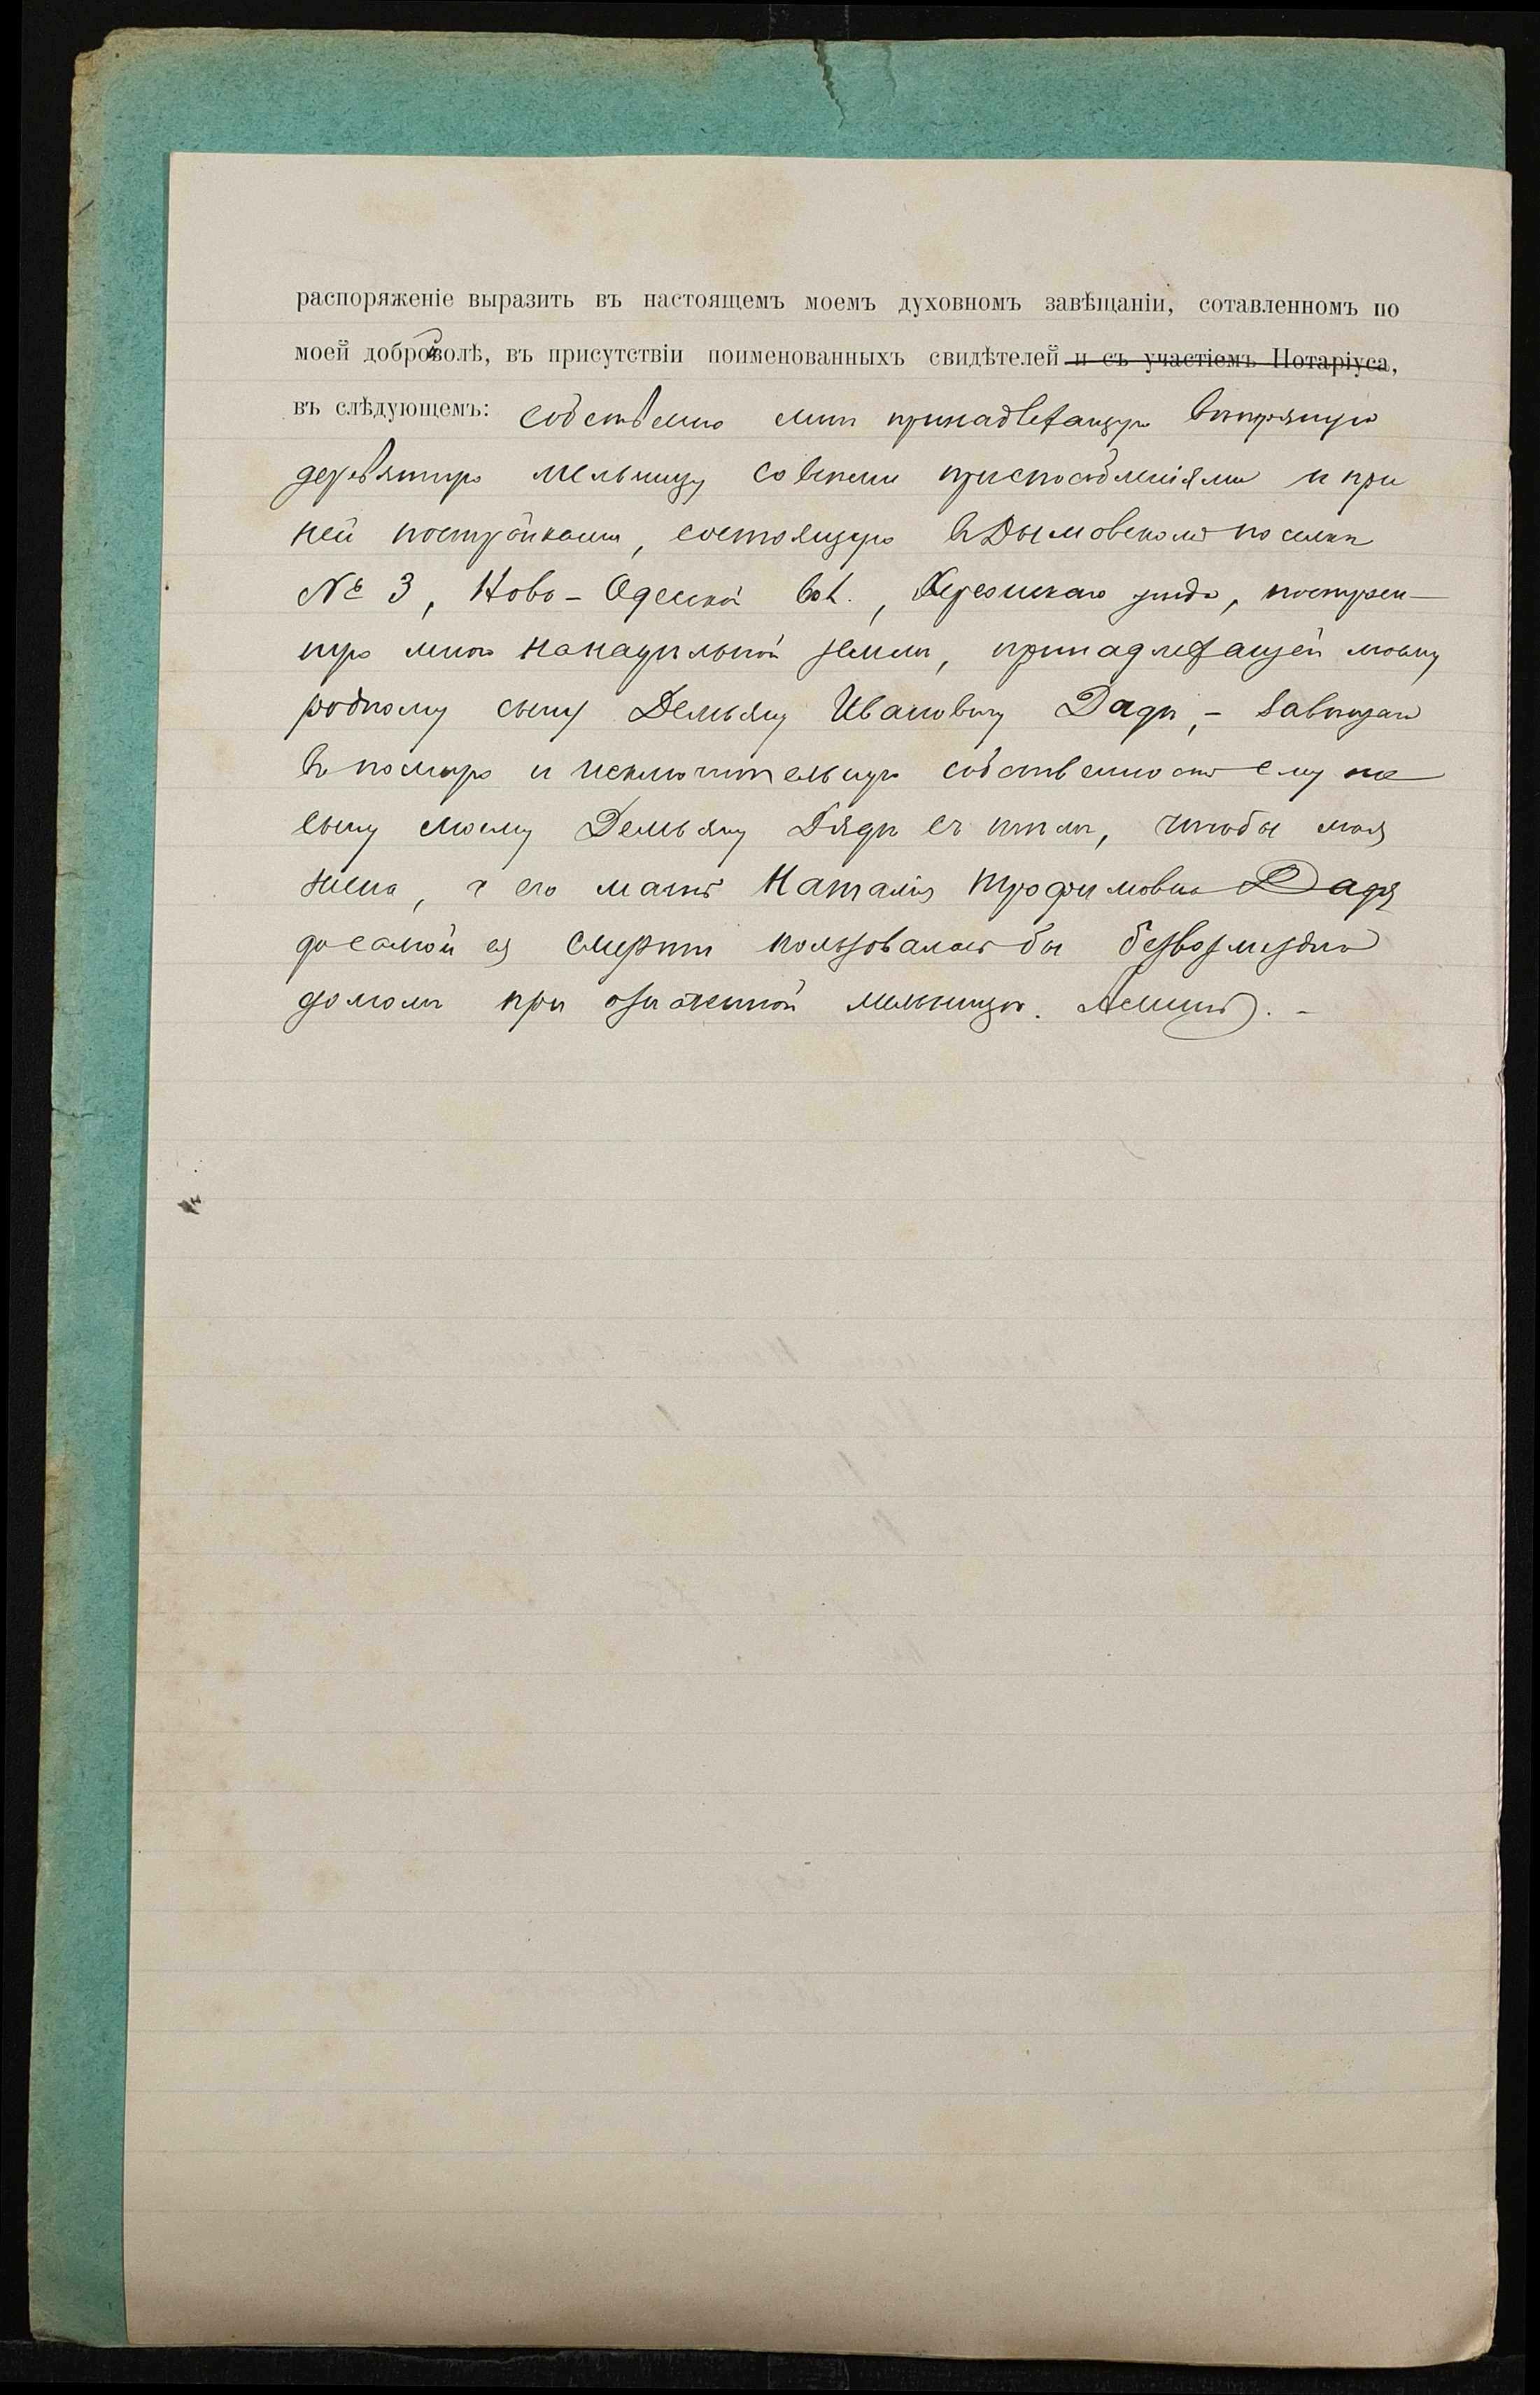 распоряженіе выразить въ настоящемъ моемъ духовномъ завѣщаніи, сотавленномъ по
моей доброй волѣ, въ присутствіи поименованныхъ свидѣтелей и съ участіемъ Нотаріуса,
въ слѣдующемъ: собственно мнѣ принадлежащую вѣтряную
деревянную мельницу со всѣми приспособленіями и при
ней постройками, состоящую въ Дымовскомъ поселкѣ
№ 3, Ново-Одесской вол., Херсонскаго уѣзда, построен-
ную мною на надѣльной землѣ, принадлежащей моему
родному сыну Демьяну Ивановичу Дядѣ, - завѣщаю
въ полную и исключительную собственность ему же
сыну моему Демьяну Дядѣ съ тѣмъ, чтобы моя
жена, а его мать Наталія Трофимовна Дядя
до самой ея смерти пользовалась бы безвозмездно
домомъ при означенной мельницѣ. Аминь. -